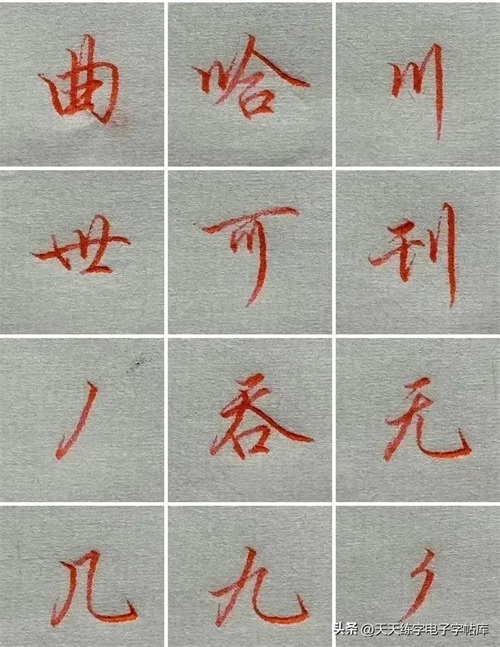 曲 哈 川
世 可 刊
丿 吞 无
几 九 𠂊
头条 @天天练字电子字帖库